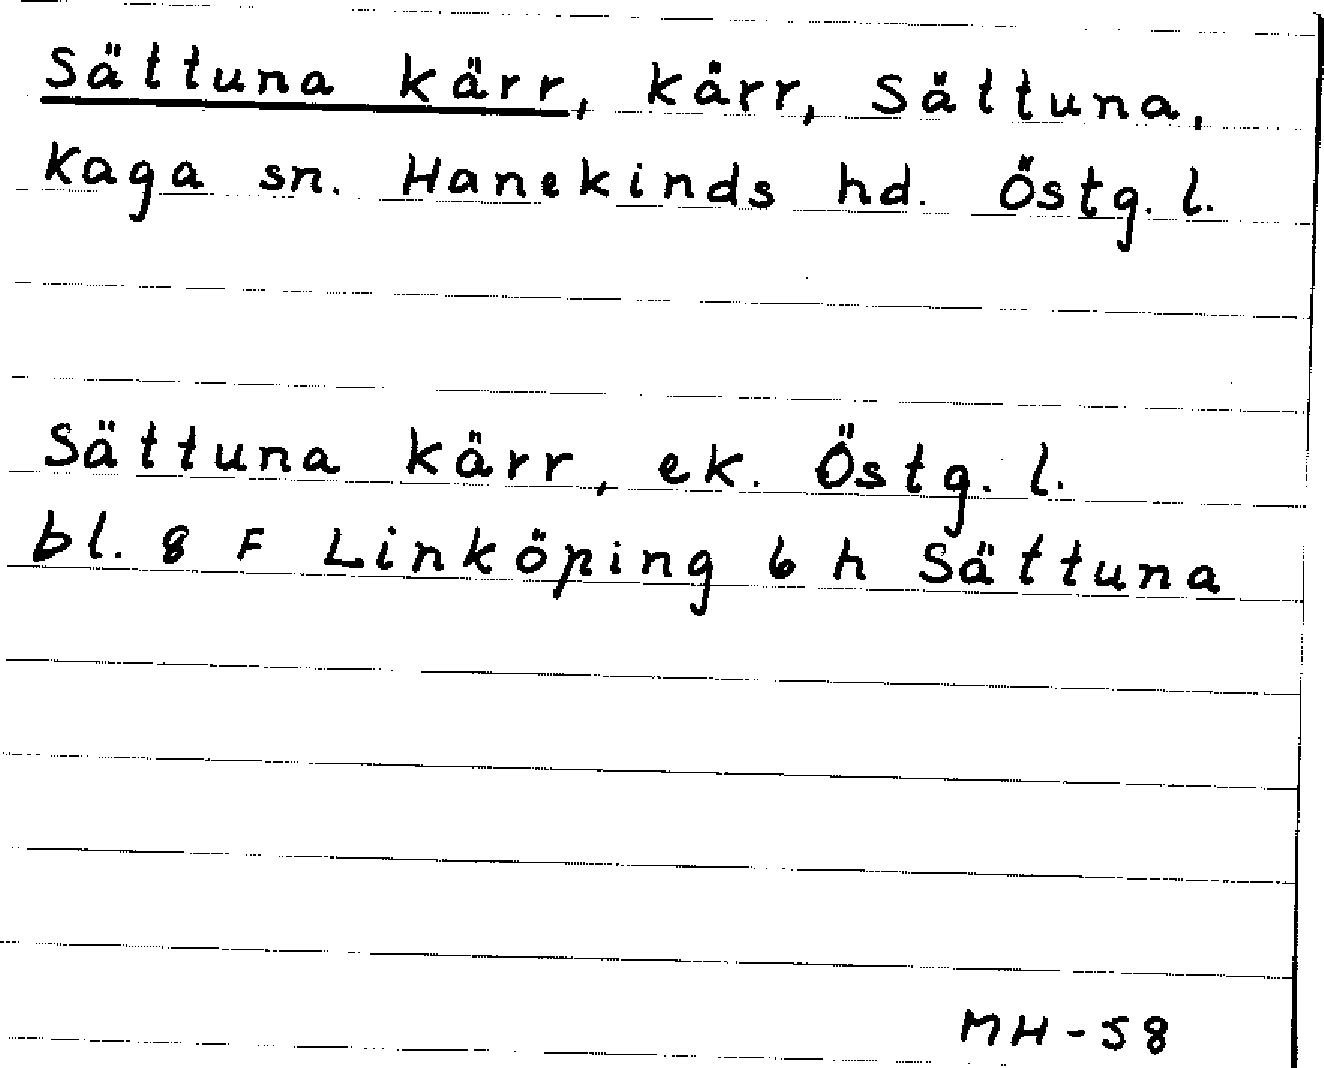 Sättuna kärr, kärr, Sättuna,
Kaga sn. Hanekinds hd. Östg. l.
Sättuna kärr, ek. Östg. l.
bl. 8 F Linköping 6 h Sättuna
MH-58